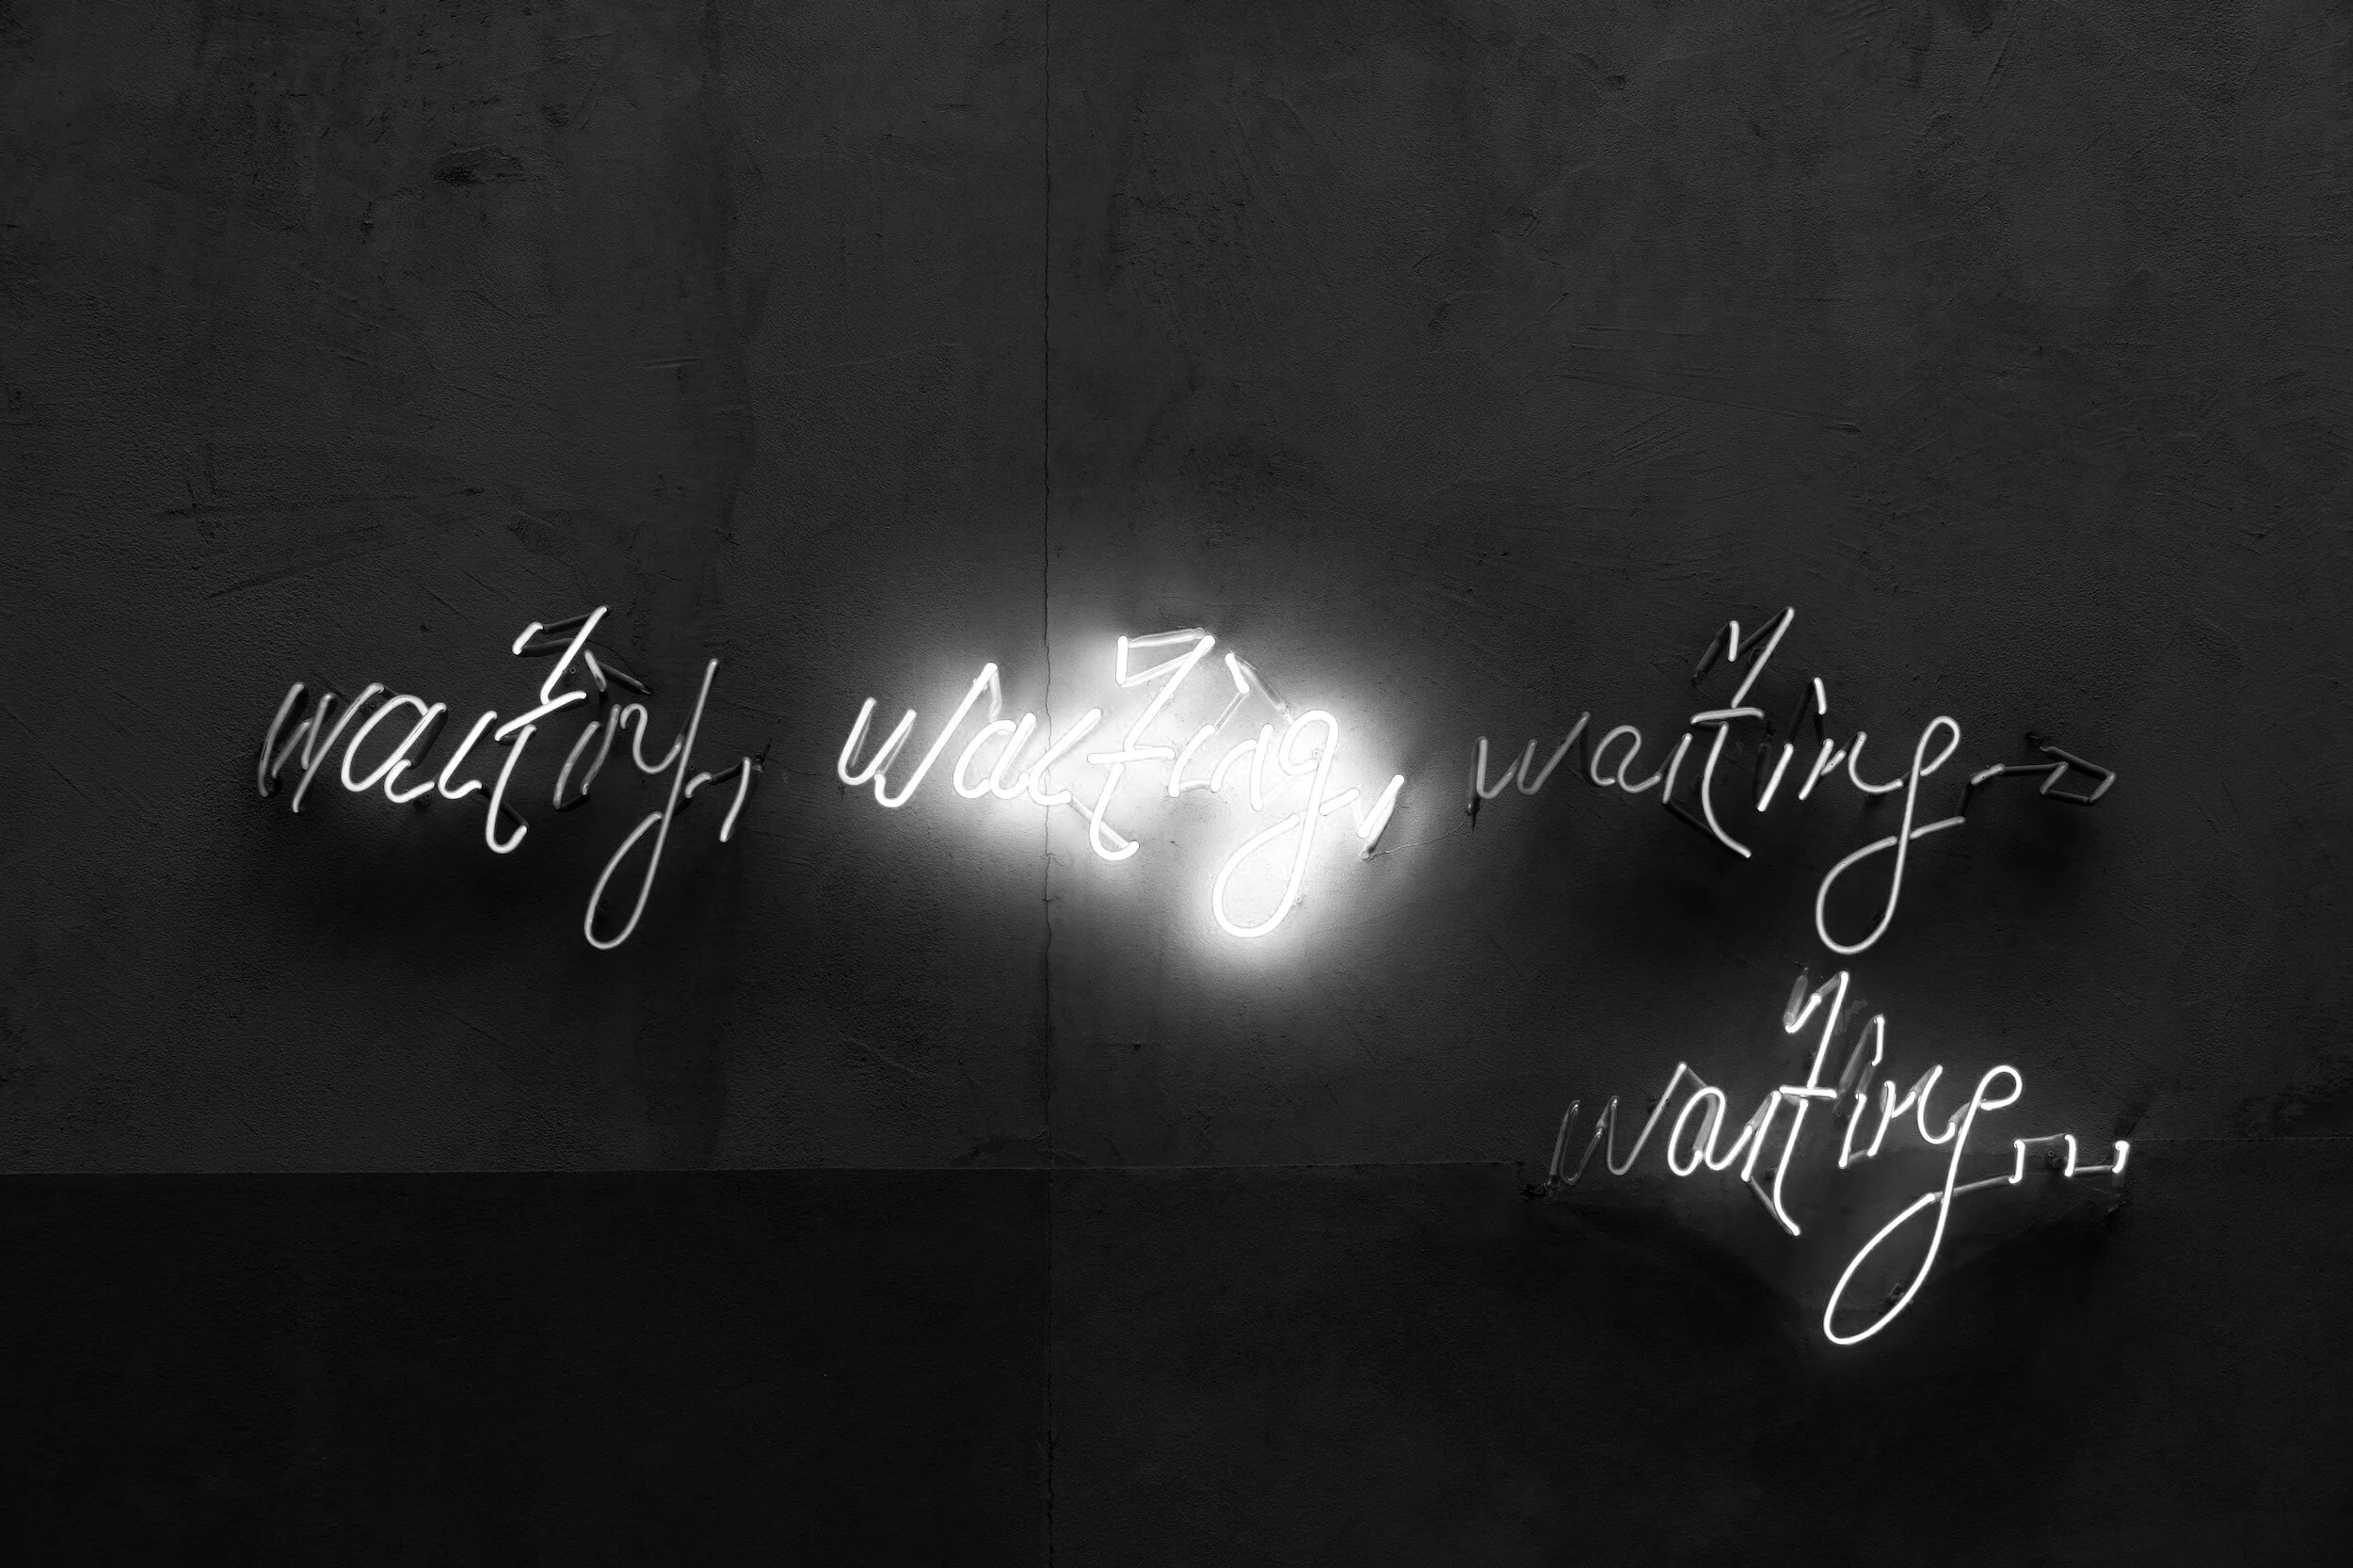 waiting, waiting, waiting
waiting...